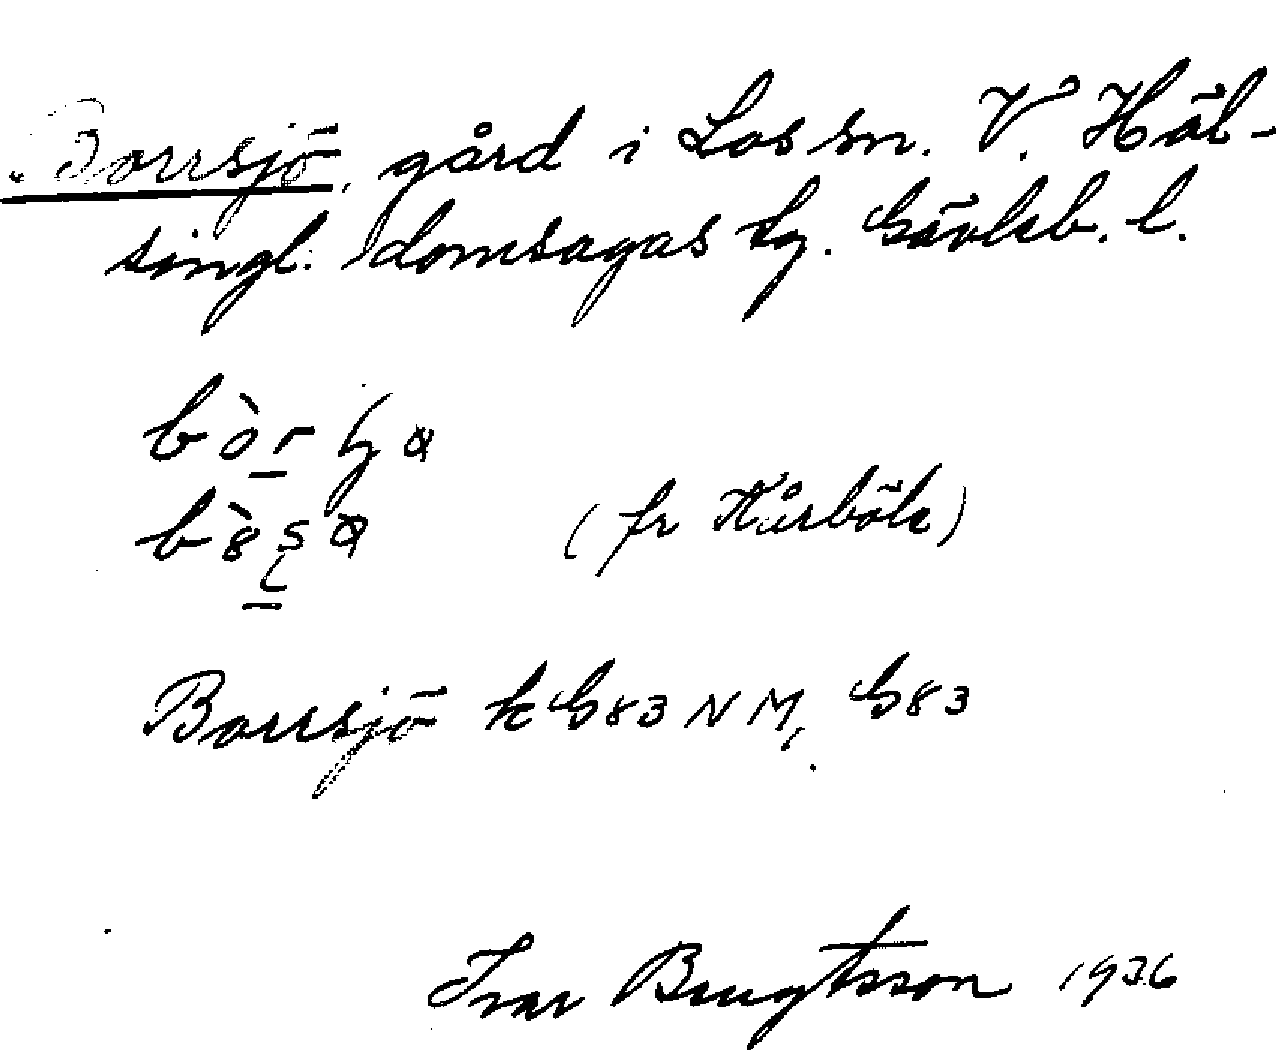 Borrsjö, gård i Los sn. V. Häl-
singl. domsagas tg. Gävleb. l.
(fr Kårböle)
Borrsjö k G83 NM, G83
Ivar Bengtsson 1936